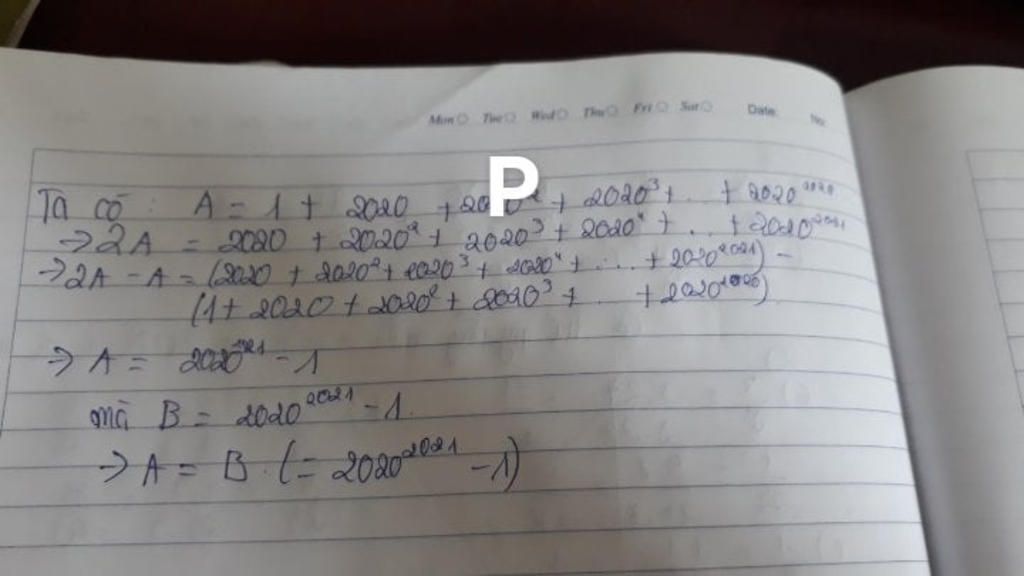 Mon Tue Wed Thu Fri Sat Date: No:
P
Ta có: A = 1 + 2020 + 2020² + 2020³ + ... + 2020²⁰²⁰
→ 2A = 2020 + 2020² + 2020³ + 2020⁴ + ... + 2020²⁰²¹
→ 2A - A = (2020 + 2020² + 2020³ + 2020⁴ + ... + 2020²⁰²¹) -
(1 + 2020 + 2020² + 2020³ + ... + 2020²⁰²⁰)
→ A = 2020²⁰²¹ - 1
mà B = 2020²⁰²¹ - 1.
→ A = B. (= 2020²⁰²¹ - 1)